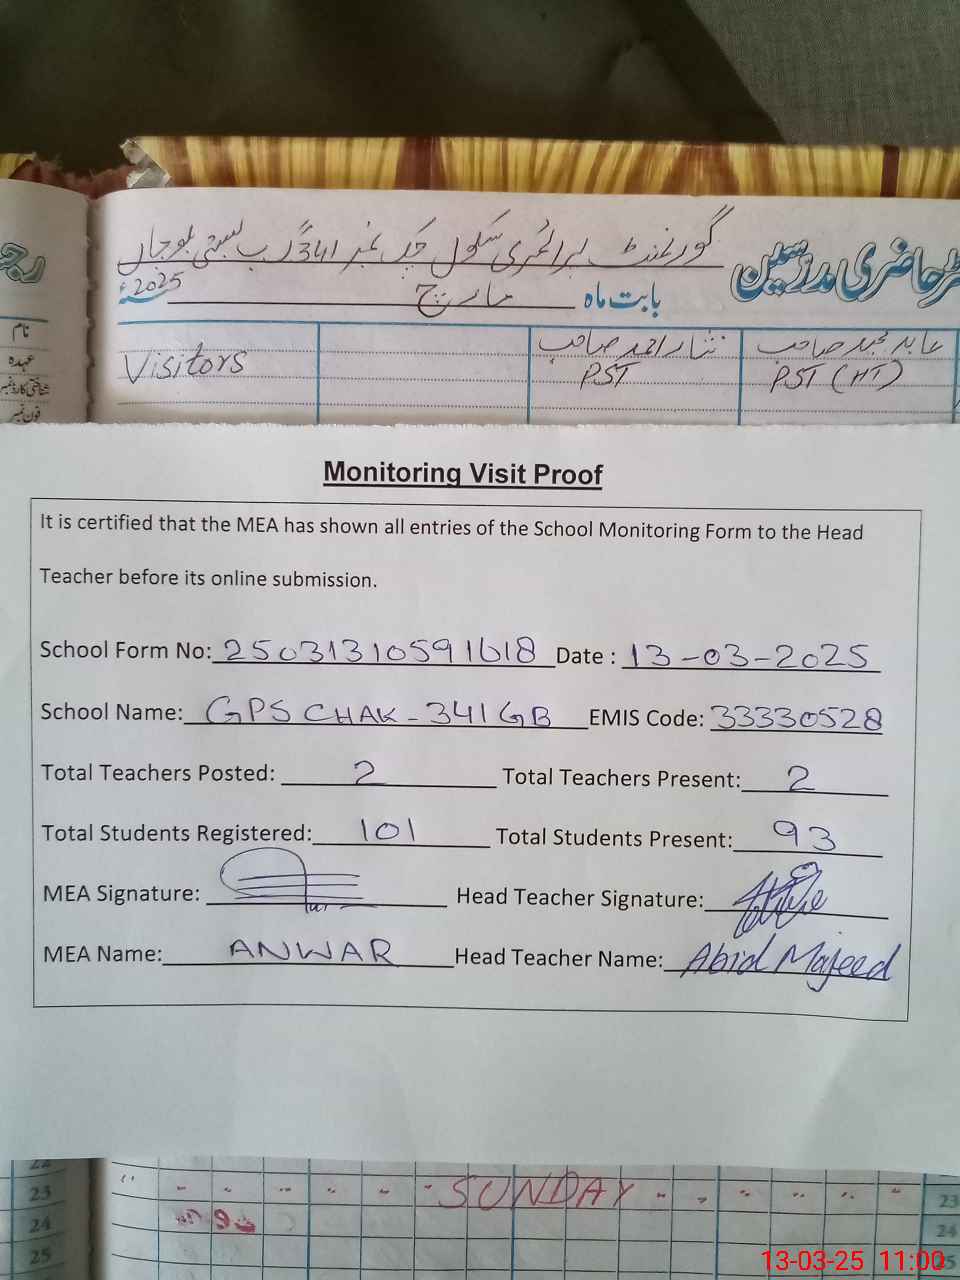 گورنمنٹ پرائمری سکول چک نمبر 341 گ ب بستی بلوچاں
رجسٹر حاضری مدرسین
بابت ماہ مارچ 2025ء
نام
عہدہ
شناختی کارڈ نمبر
فون نمبر
Visitors
نثار احمد صاحب
PST
عابد مجید صاحب
PST (HT)
Monitoring Visit Proof
It is certified that the MEA has shown all entries of the School Monitoring Form to the Head
Teacher before its online submission.
School Form No: 25031310591618 Date : 13-03-2025
School Name: GPS CHAK - 341 GB EMIS Code: 33330528
Total Teachers Posted: 2 Total Teachers Present: 2
Total Students Registered: 101 Total Students Present: 93
MEA Signature: Head Teacher Signature:
MEA Name: ANWAR Head Teacher Name: Abid Majeed
22
23 SUNDAY 23
24 24
25 25
13-03-25 11:00